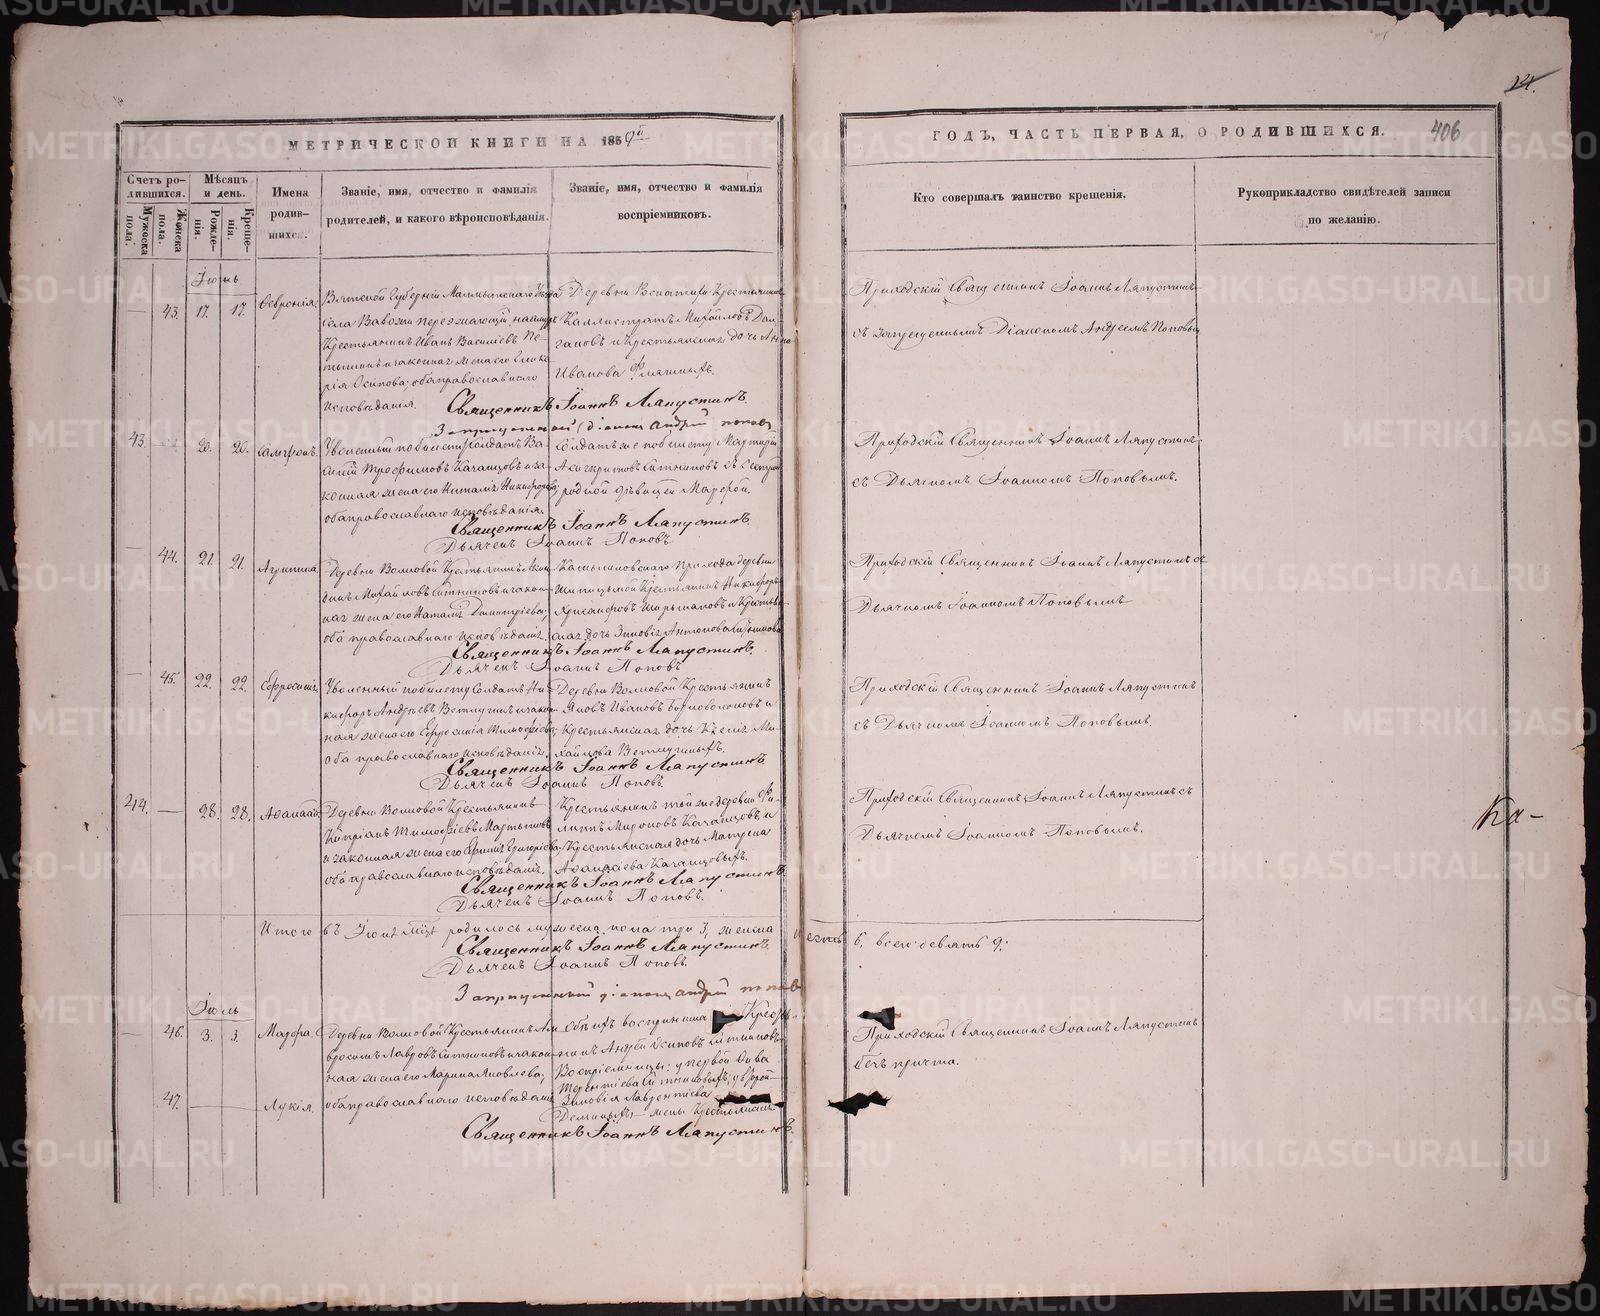 24.
МЕТРИЧЕСКОЙ КНИГИ НА 1859й
ГОДЪ, ЧАСТЬ ПЕРВАЯ, О РОДИВШИХСЯ.
406
Счетъ родившихся.
Мужеска пола.
Женска пола.
Мѣсяцъ и день.
Рожденія.
Крещенія.
Имена родившихся.
Званіе, имя, отчество и фамилія
родителей, и какого вѣроисповѣданія.
Званіе, имя, отчество и фамилія
воспріемниковъ.
Кто совершалъ таинство крещенія.
Рукоприкладство свидѣтелей записи
по желанію.
Іюнь
43. 17. 17. Февронія
Вятской Губерніи Малмыжскаго Уѣзда
села Вавожа
Крестьянинъ Иванъ Васильевъ
и законная жена его
Осипова; оба православнаго
исповѣданія.
Деревни Крестьянинъ
Каллистратъ Михайловъ
и Крестьянская дочь Анна
Иванова
Приходскій Священникъ Іоаннъ Ляпустинъ
съ запрещеннымъ Діакономъ Андреемъ Поповымъ
Священникъ Іоаннъ Ляпустинъ
Запрещенный діаконъ Андрей Поповъ
43. 20. 20.
Уволенный по билету солдатъ Василій Трофимовъ Казанцовъ и законная жена его Наталія Никифорова;
оба православнаго исповѣданія.
Солдатъ же по билету
Ситниковъ съ сестрой
родной дѣвицей Марфой.
Приходскій Священникъ Іоаннъ Ляпустинъ
съ Дьячкомъ Іоанномъ Поповымъ.
Священникъ Іоаннъ Ляпустинъ.
Дьячекъ Іоаннъ Поповъ
44. 21. 21. Агрипина
Деревни Волковой Крестьянинъ
Михайловъ Ситниковъ и законная жена его Наталія Димитріева;
оба православнаго исповѣданія.
прихода деревни
Крестьянинъ Никифоръ
и Крестьянская дочь Зиновія Антонова Ситникова
Приходскій Священникъ Іоаннъ Ляпустинъ съ
Дьячкомъ Іоанномъ Поповымъ
Священникъ Іоаннъ Ляпустинъ.
Дьячекъ Іоаннъ Поповъ
45. 22. 22. Ефросинія
Уволенный по билету Солдатъ Никифоръ Андреевъ Ветлугинъ и законная жена его Ефросинія Тимофѣева;
оба православнаго исповѣданія.
Деревни Волковой Крестьянинъ
Яковъ Ивановъ и
Крестьянская дочь Ксенія Михайлова Ветлугины.
Приходскій Священникъ Іоаннъ Ляпустинъ
съ Дьячкомъ Іоанномъ Поповымъ.
Священникъ Іоаннъ Ляпустинъ
Дьячекъ Іоаннъ Поповъ.
44. 28. 28. Афанасій
Деревни Волковой Крестьянинъ
Кипріанъ Тимофѣевъ Мартыновъ
и законная жена его Ирина Григорьева;
оба православнаго исповѣданія.
Крестьянинъ той же деревни Филиппъ Мироновъ Казанцовъ и
Крестьянская дочь Матрена
Афанасіева Казанцовыхъ.
Приходскій Священникъ Іоаннъ Ляпустинъ съ
Дьячкомъ Іоанномъ Поповымъ.
Священникъ Іоаннъ Ляпустинъ.
Дьячекъ Іоаннъ Поповъ.
Ка-
Итого въ Іюнѣ мцѣ родилось мужеска пола три 3, женска шесть 6, всего девять 9.
Священникъ Іоаннъ Ляпустинъ.
Дьячекъ Іоаннъ Поповъ.
Запрещенный діаконъ Андрей Поповъ
Іюль
46. 3. 3. Марфа.
47. Лукія.
Деревни Волковой Крестьянинъ Амвросій Лавровъ Ситниковъ и законная жена его Марина Яковлева;
оба православнаго исповѣданія
Обѣихъ воспринималъ Крестьянинъ Андрей Осиповъ Ситниковъ.
Воспріемницы: у первой
Терентіева Ситниковыхъ; у второй
Зиновія Лаврентіева
Приходскій Священникъ Іоаннъ Ляпустинъ
безъ причта.
Священникъ Іоаннъ Ляпустинъ.
METRIKI.GASO-URAL.RU